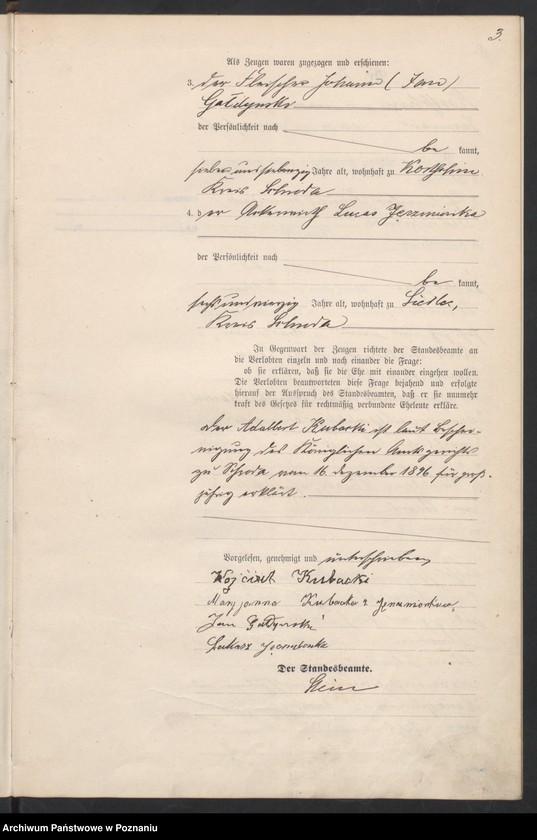 3.
Als Zeugen waren zugezogen und erschienen:
3. der Fleischer Johann (Jan)
der Persönlichkeit nach
be kannt,
sieben und siebenzig Jahre alt, wohnhaft zu
Kreis Schroda
4. der Ackerwirth Lucas
der Persönlichkeit nach
be kannt,
sechs und vierzig Jahre alt, wohnhaft zu Siedlec,
Kreis Schroda
In Gegenwart der Zeugen richtete der Standesbeamte an
die Verlobten einzeln und nach einander die Frage:
ob sie erklären, daß sie die Ehe mit einander eingehen wollen.
Die Verlobten beantworteten diese Frage bejahend und erfolgte
hierauf der Ausspruch des Standesbeamten, daß er sie nunmehr
kraft des Gesetzes für rechtmäßig verbundene Eheleute erkläre.
Der Adalbert Kubacki ist laut Beschei-
nigung des Königlichen Amtsgerichts
zu Schroda vom 16. Dezember 1896 für groß-
jährig erklärt.
Vorgelesen, genehmigt und unterschrieben
Kubacki
Maryjanna Kubacka
Jan
Łukasz
Der Standesbeamte.
Archiwum Państwowe w Poznaniu